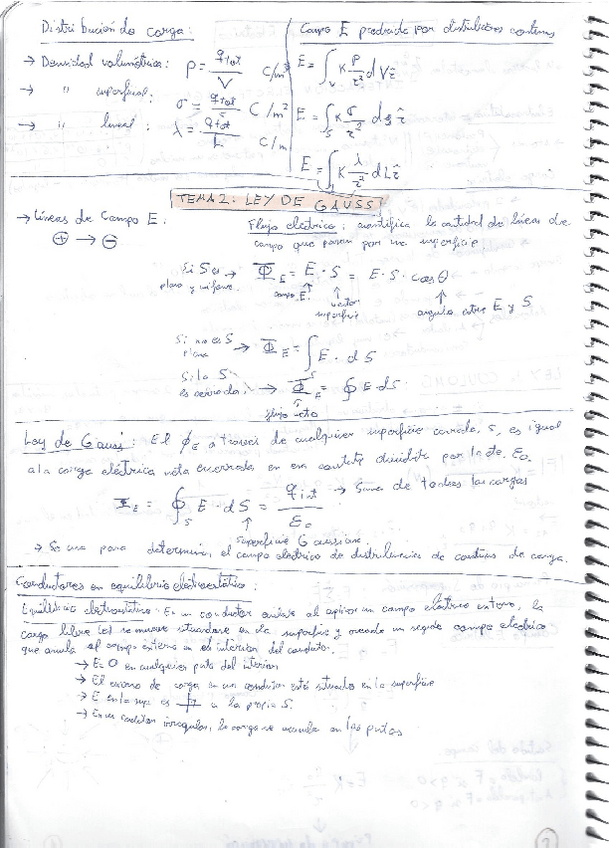 Distribución de carga:
→ Densidad volumétrica: ρ = q tot / V C/m³
→ " superficial: σ = q tot / S C/m²
→ " lineal: λ = q tot / L C/m
Campo E producido por distribuciones continuas
E = ∫v K ρ/r² dV r̂
E = ∫s K σ/r² ds r̂
E = ∫ K λ/r² dL r̂
TEMA 2: LEY DE GAUSS
→ Líneas de Campo E:
⊕ → ⊖
Flujo eléctrico: cuantifica la cantidad de líneas de
campo que pasan por una superficie
Si S es plana y uniforme → Φ_E = E · S = E · S · cos θ
campo E.
vector superficie
angulo entre E y S
Si no es S plana → Φ_E = ∫s E · dS
Si la S es cerrada → Φ_E = ∮ E · ds
flujo neto
Ley de Gauss: El ϕ_E a traves de cualquier superficie cerrada, S, es igual
a la carga eléctrica neta encerrada en esa dividida por la cte. ε₀
Φ_E = ∮s E · dS = q int / ε₀ → Suma de todas las cargas
superficie Gaussiana
→ Se usa para determinar el campo electrico de distribuciones de continuas de carga.
Conductores en equilibrio electrostático:
Equilibrio electrostático: En un conductor al aplicar un campo eléctrico externo, la
carga libre (e) se mueve situandose en la superficie y creando un campo electrico
que anula al campo externo en el interior del conductor.
→ E = 0 en cualquier punto del interior
→ El exceso de carga en un conductor está situado en la superficie
→ E en la sup. es ⊥ a la propia S.
→ En irregulares, la carga se acumula en las puntas
2